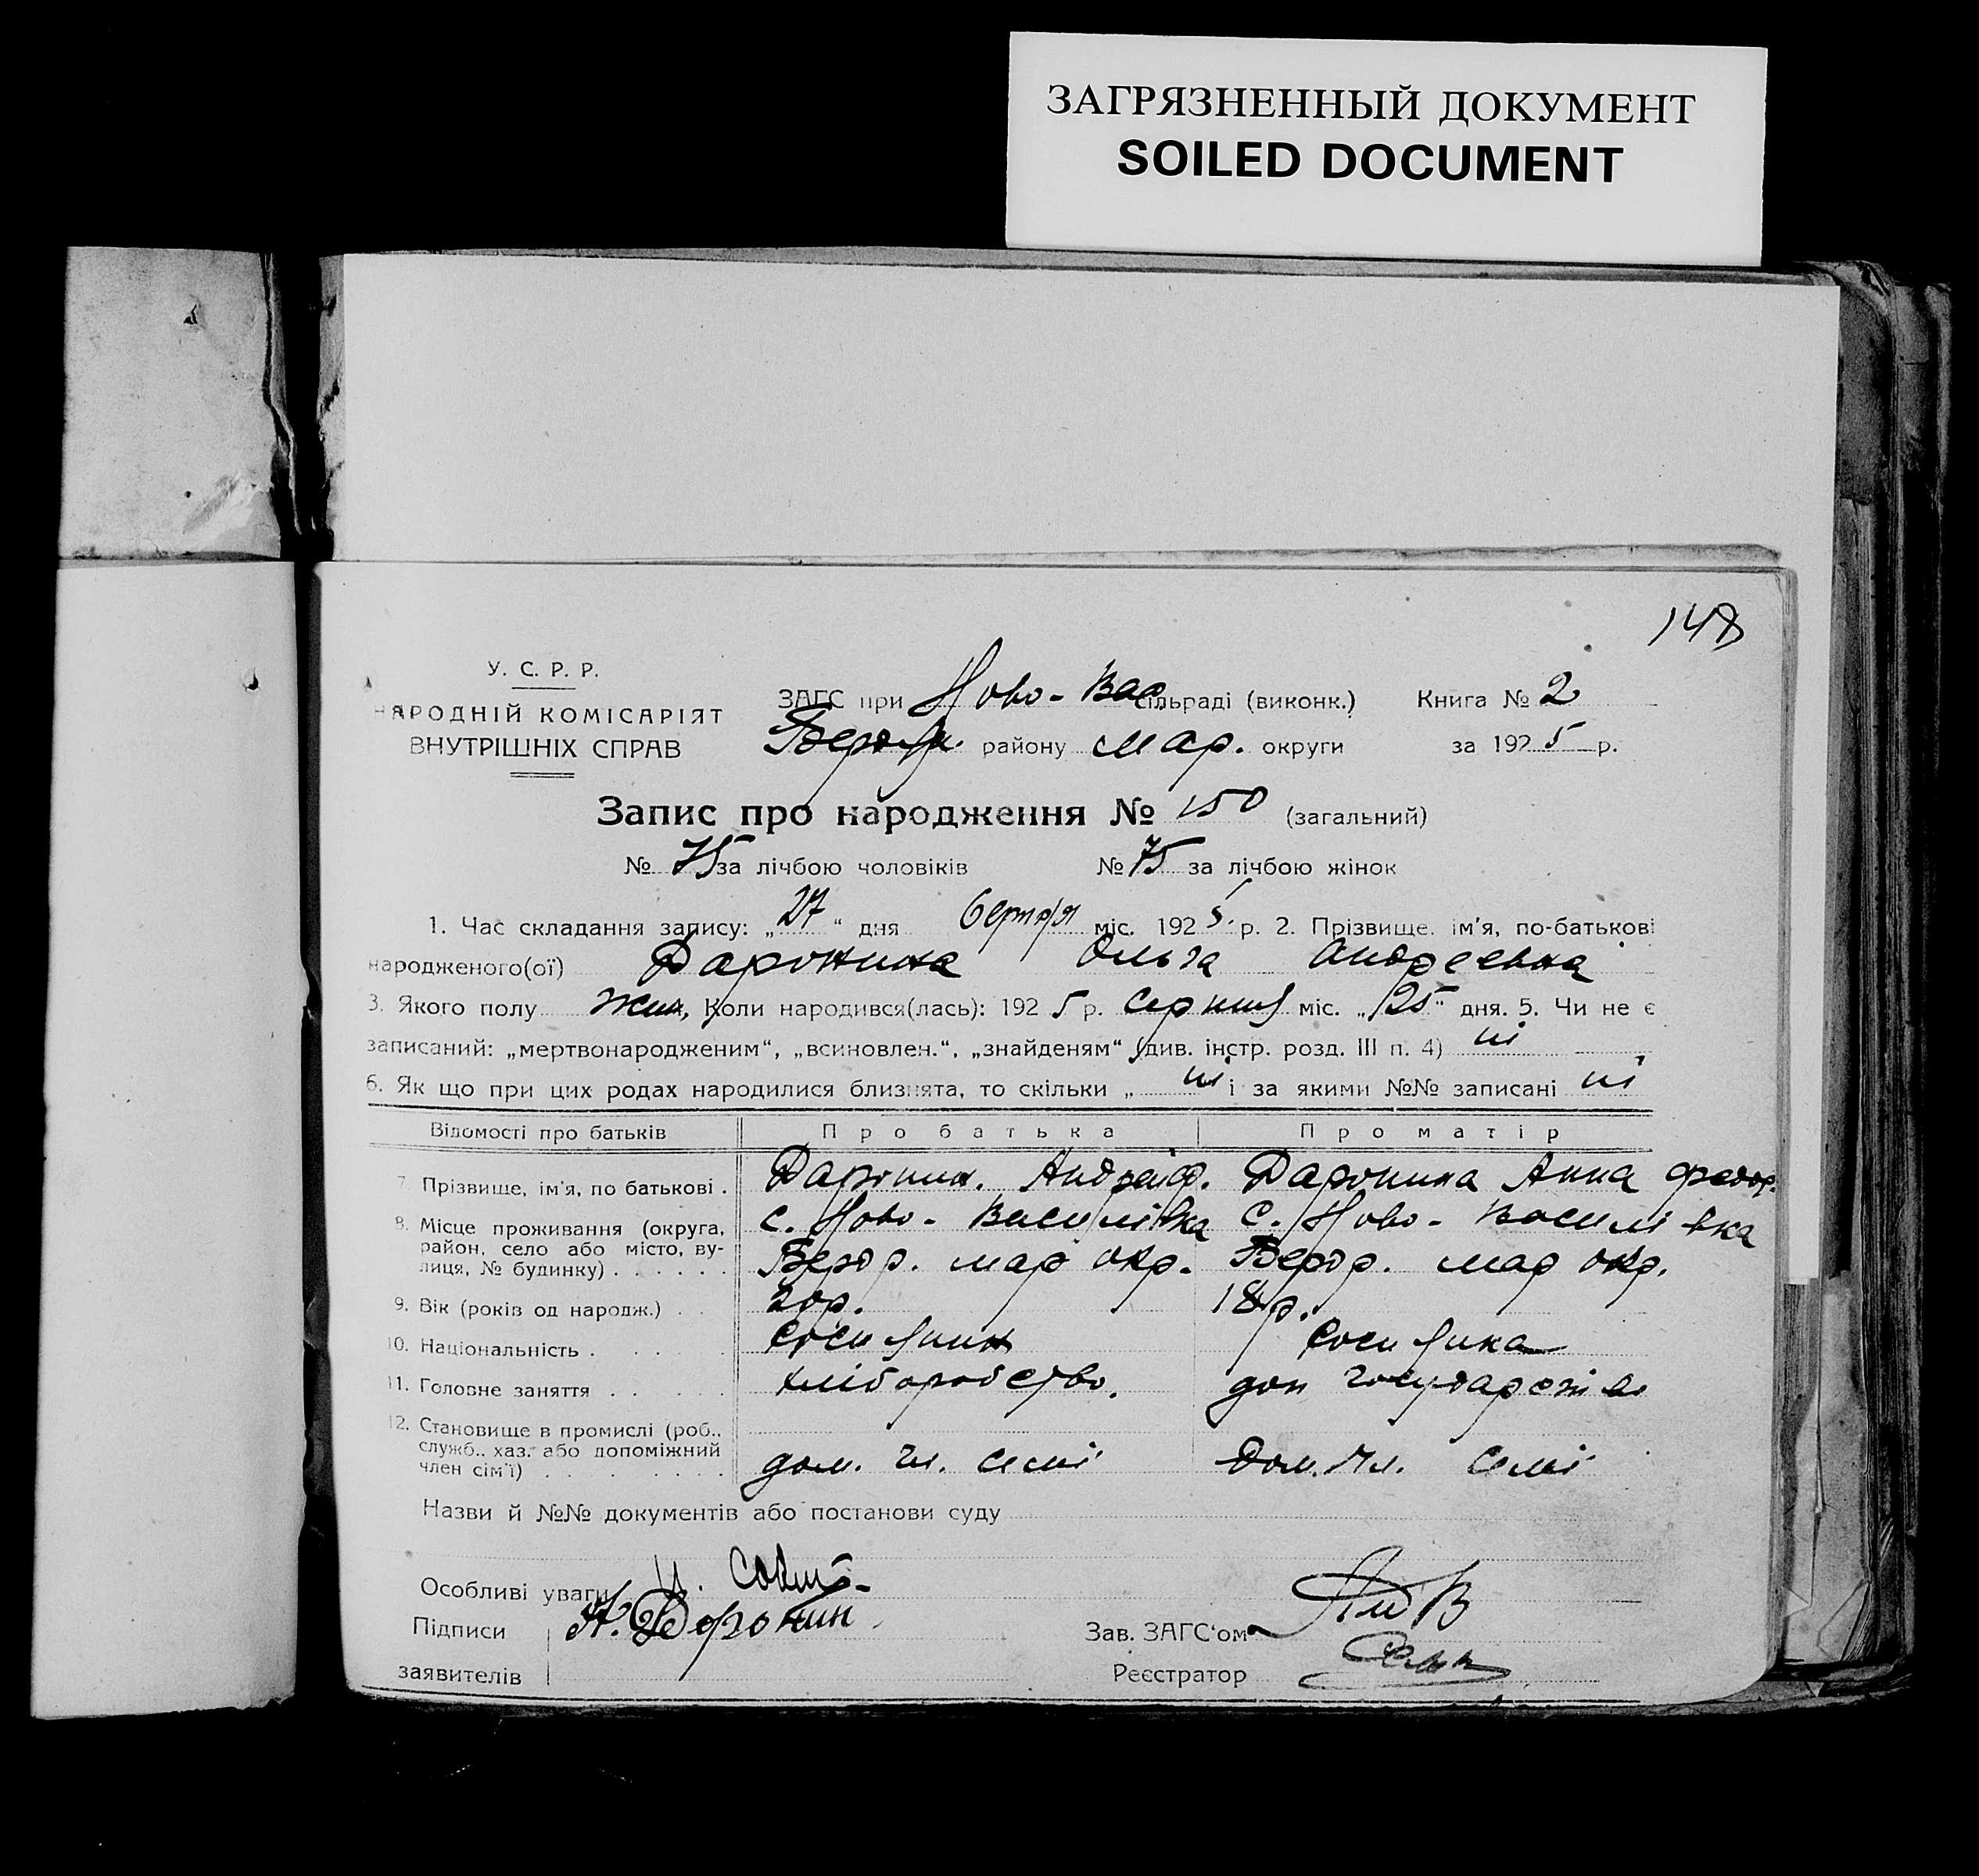 ЗАГРЯЗНЕННЫЙ ДОКУМЕНТ
SOILED DOCUMENT
148
У. С. Р. Р.
НАРОДНІЙ КОМІСАРІЯТ
ВНУТРІШНІХ СПРАВ
ЗАГС при Ново-Вас. сільраді (виконк.) Книга № 2
району Мар. округи за 1925 р.
Запис про народження № 150 (загальний)
№ 75 за лічбою чоловіків № 75 за лічбою жінок
1. Час складання запису: „27“ дня міс. 1925 р. 2. Прізвище, ім'я, по-батькові
народженого(ої) Даронина Ольга Андреевна
3. Якого полу жин, Коли народився(лась): 1925 р. серпня міс. „25“ дня. 5. Чи не є
записаний: „мертвонародженим“, „всиновлен.“, „знайденям“ (див. інстр. розд. III п. 4) ні
6. Як що при цих родах народилися близнята, то скільки „ ні і за якими №№ записані ні
Відомості про батьків Про батька Про матір
7. Прізвище, ім'я, по батькові . Даронин. Андрей Ф. Даронина Анна Федор.
8. Місце проживання (округа, с. Ново-Василівка С. Ново-Василівка
район, село або місто, ву-
лиця, № будинку) . . . . . . Бердр. мар окр. Бердр. мар окр.
9. Вік (років од народж.) . . 20р. 18р.
10. Національність . . . .
11. Головне заняття . . . . хліборобство. дом
12. Становище в промислі (роб.,
служб., хаз. або допоміжний
член сім'ї) . . . . . . . . дом. чл. семі Дом. чл. семі
Назви й №№ документів або постанови суду
Особливі уваги
Підписи А. Доронин
Зав. ЗАГС'ом
заявителів Реєстратор